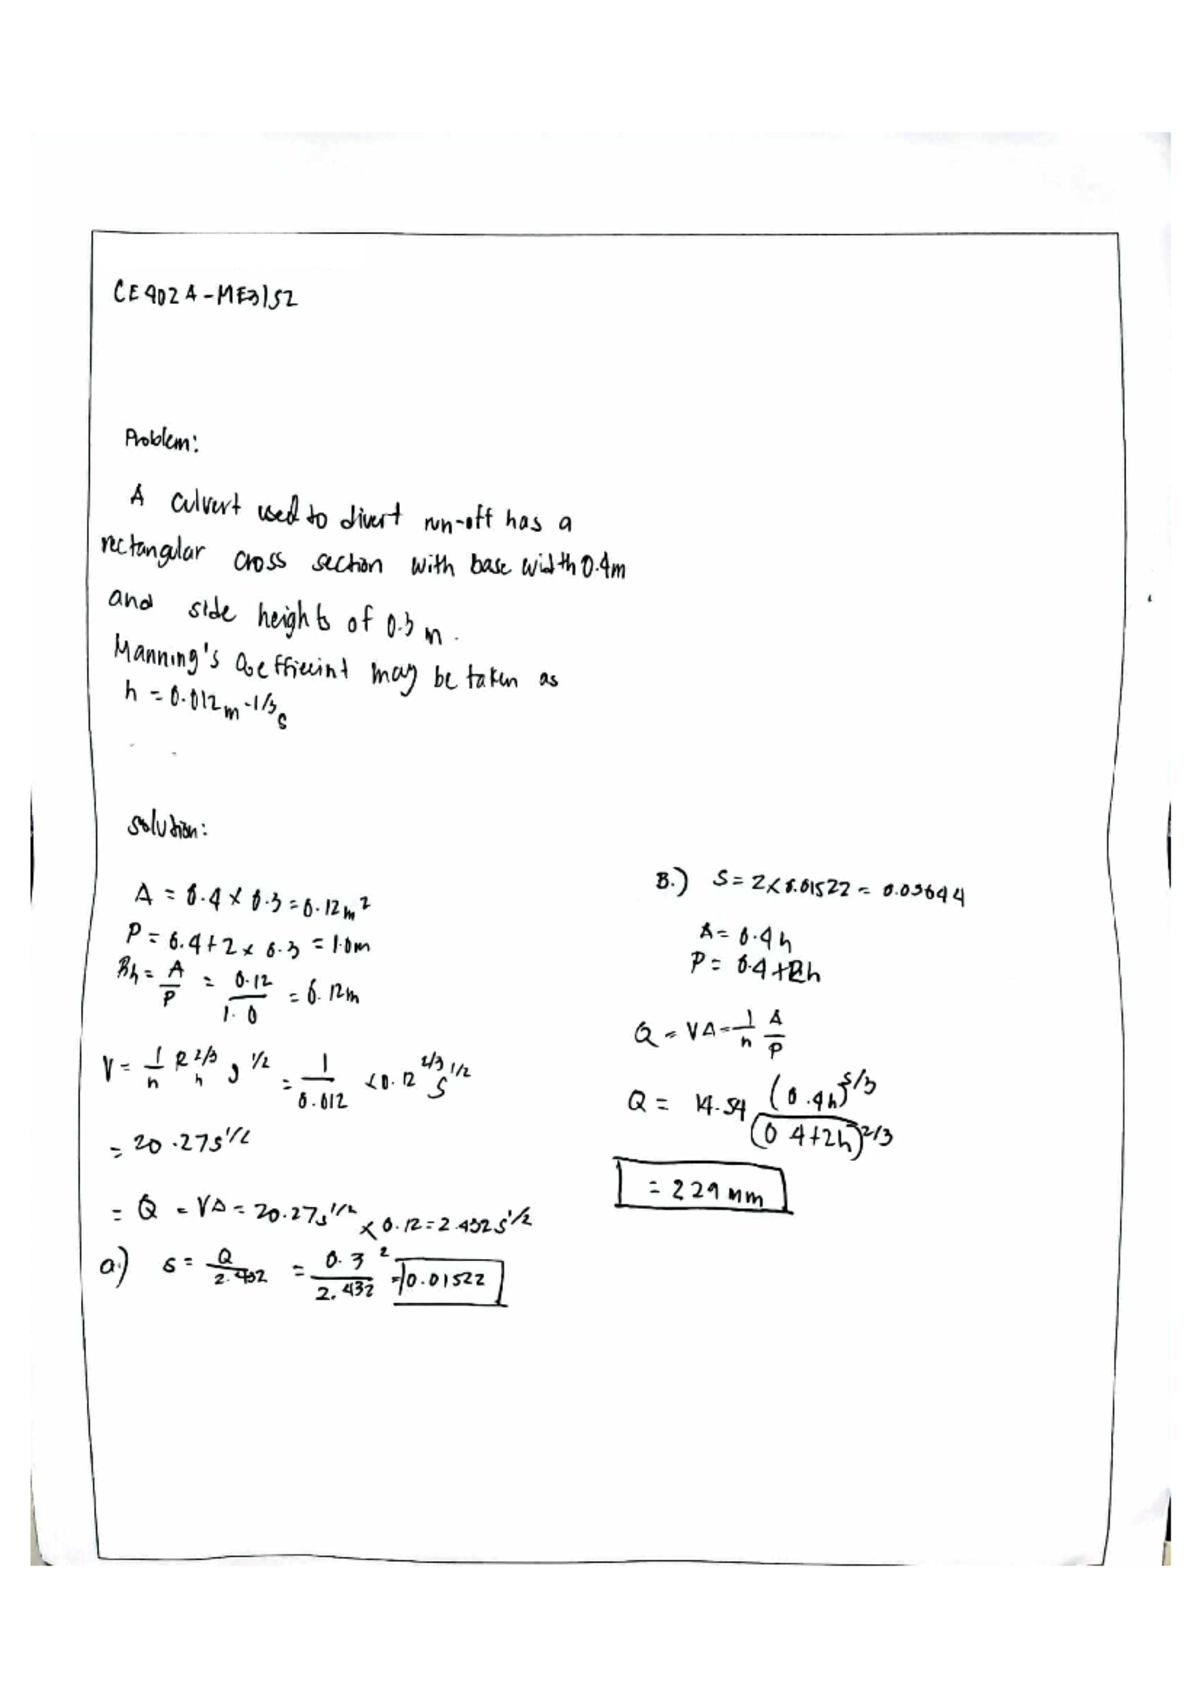 CE402A-ME3152
Problem:
A culvert used to divert run-off has a
rectangular cross section with base width 0.4m
and side heights of 0.3 m.
Manning's Coefficient may be taken as
h = 0.012 m -1/3 s
solution:
A = 0.4 x 0.3 = 0.12 m 2
P = 0.4 + 2 x 0.3 = 1.0m
Rh = A/P = 0.12/1.0 = 0.12m
V = 1/n R 2/3 h J 1/2 = 1/0.012 x 0.12 2/3 S 1/2
= 20.27 s 1/2
= Q = VA = 20.27s 1/2 x 0.12 = 2.432 s 1/2
a.) s = Q/2.432 = 0.3 2/2.432 = 0.01522
B.) S = 2 x 0.01522 = 0.03044
A = 0.4h
P = 0.4 + 2h
Q = VA = 1/n A/P
Q = 14.54 (0.4h) 5/3 / (0.4+2h) 2/3
= 229 mm